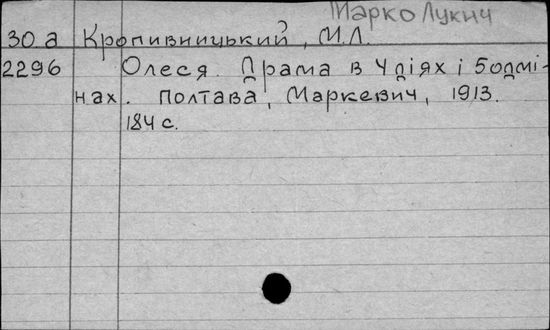 Марко Лукич
30 а Кропивницький, М.Л.
2296 Олеся. Драма в 4 діях і 5 одмі-
нах. Полтава, Маркевич, 1913.
184 с.